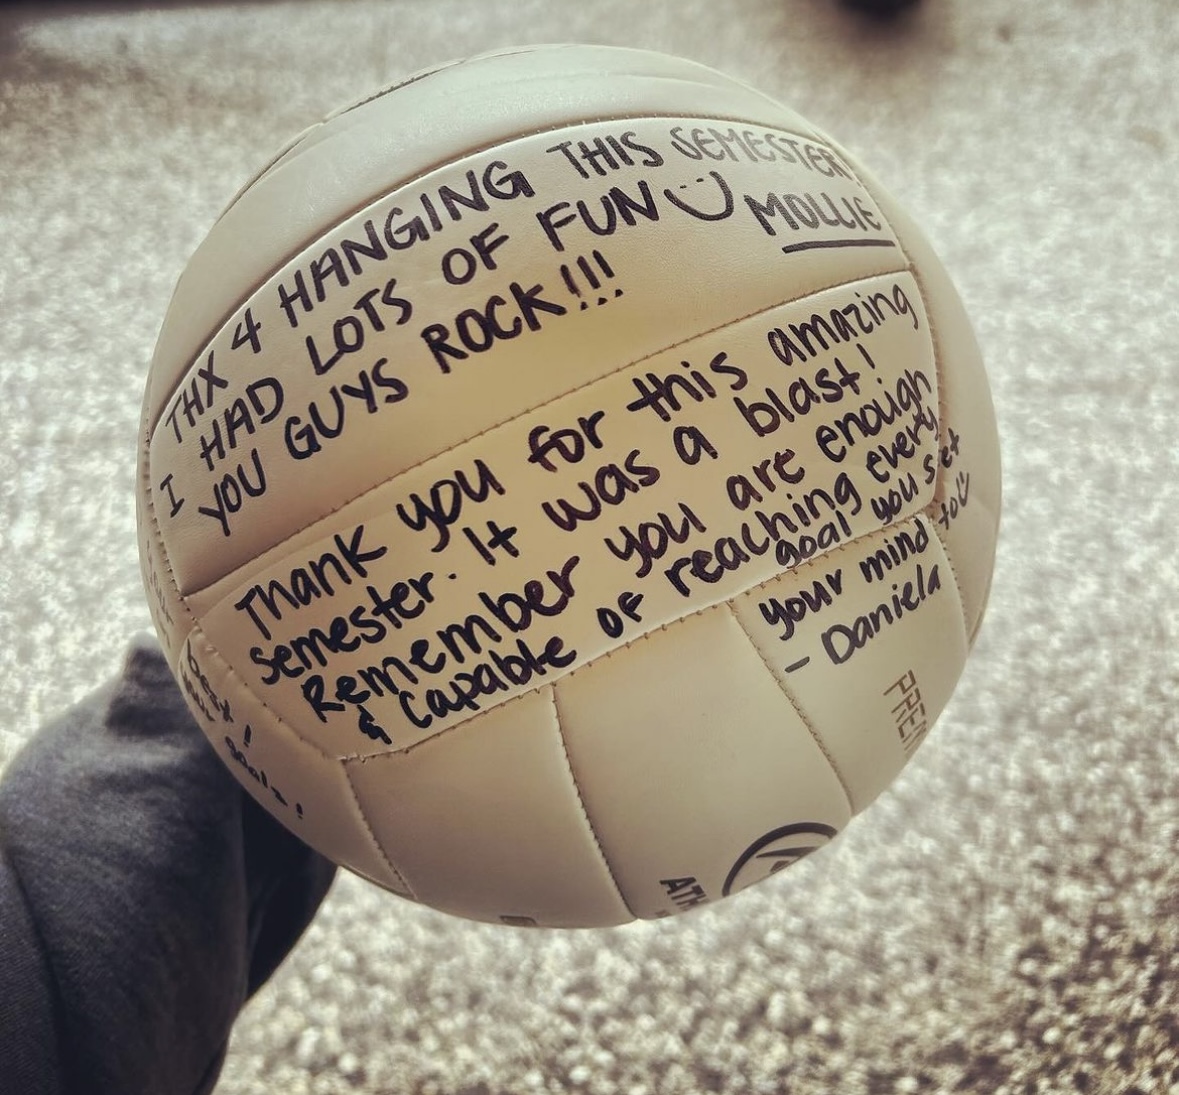 THX 4 HANGING THIS SEMESTER!
I HAD LOTS OF FUN MOLLIE
YOU GUYS ROCK!!!
Thank you for this amazing
Semester. It was a blast!
Remember you are enough
& Capable of reaching every
goal you set
your mind to
- Daniela
best!
goals!